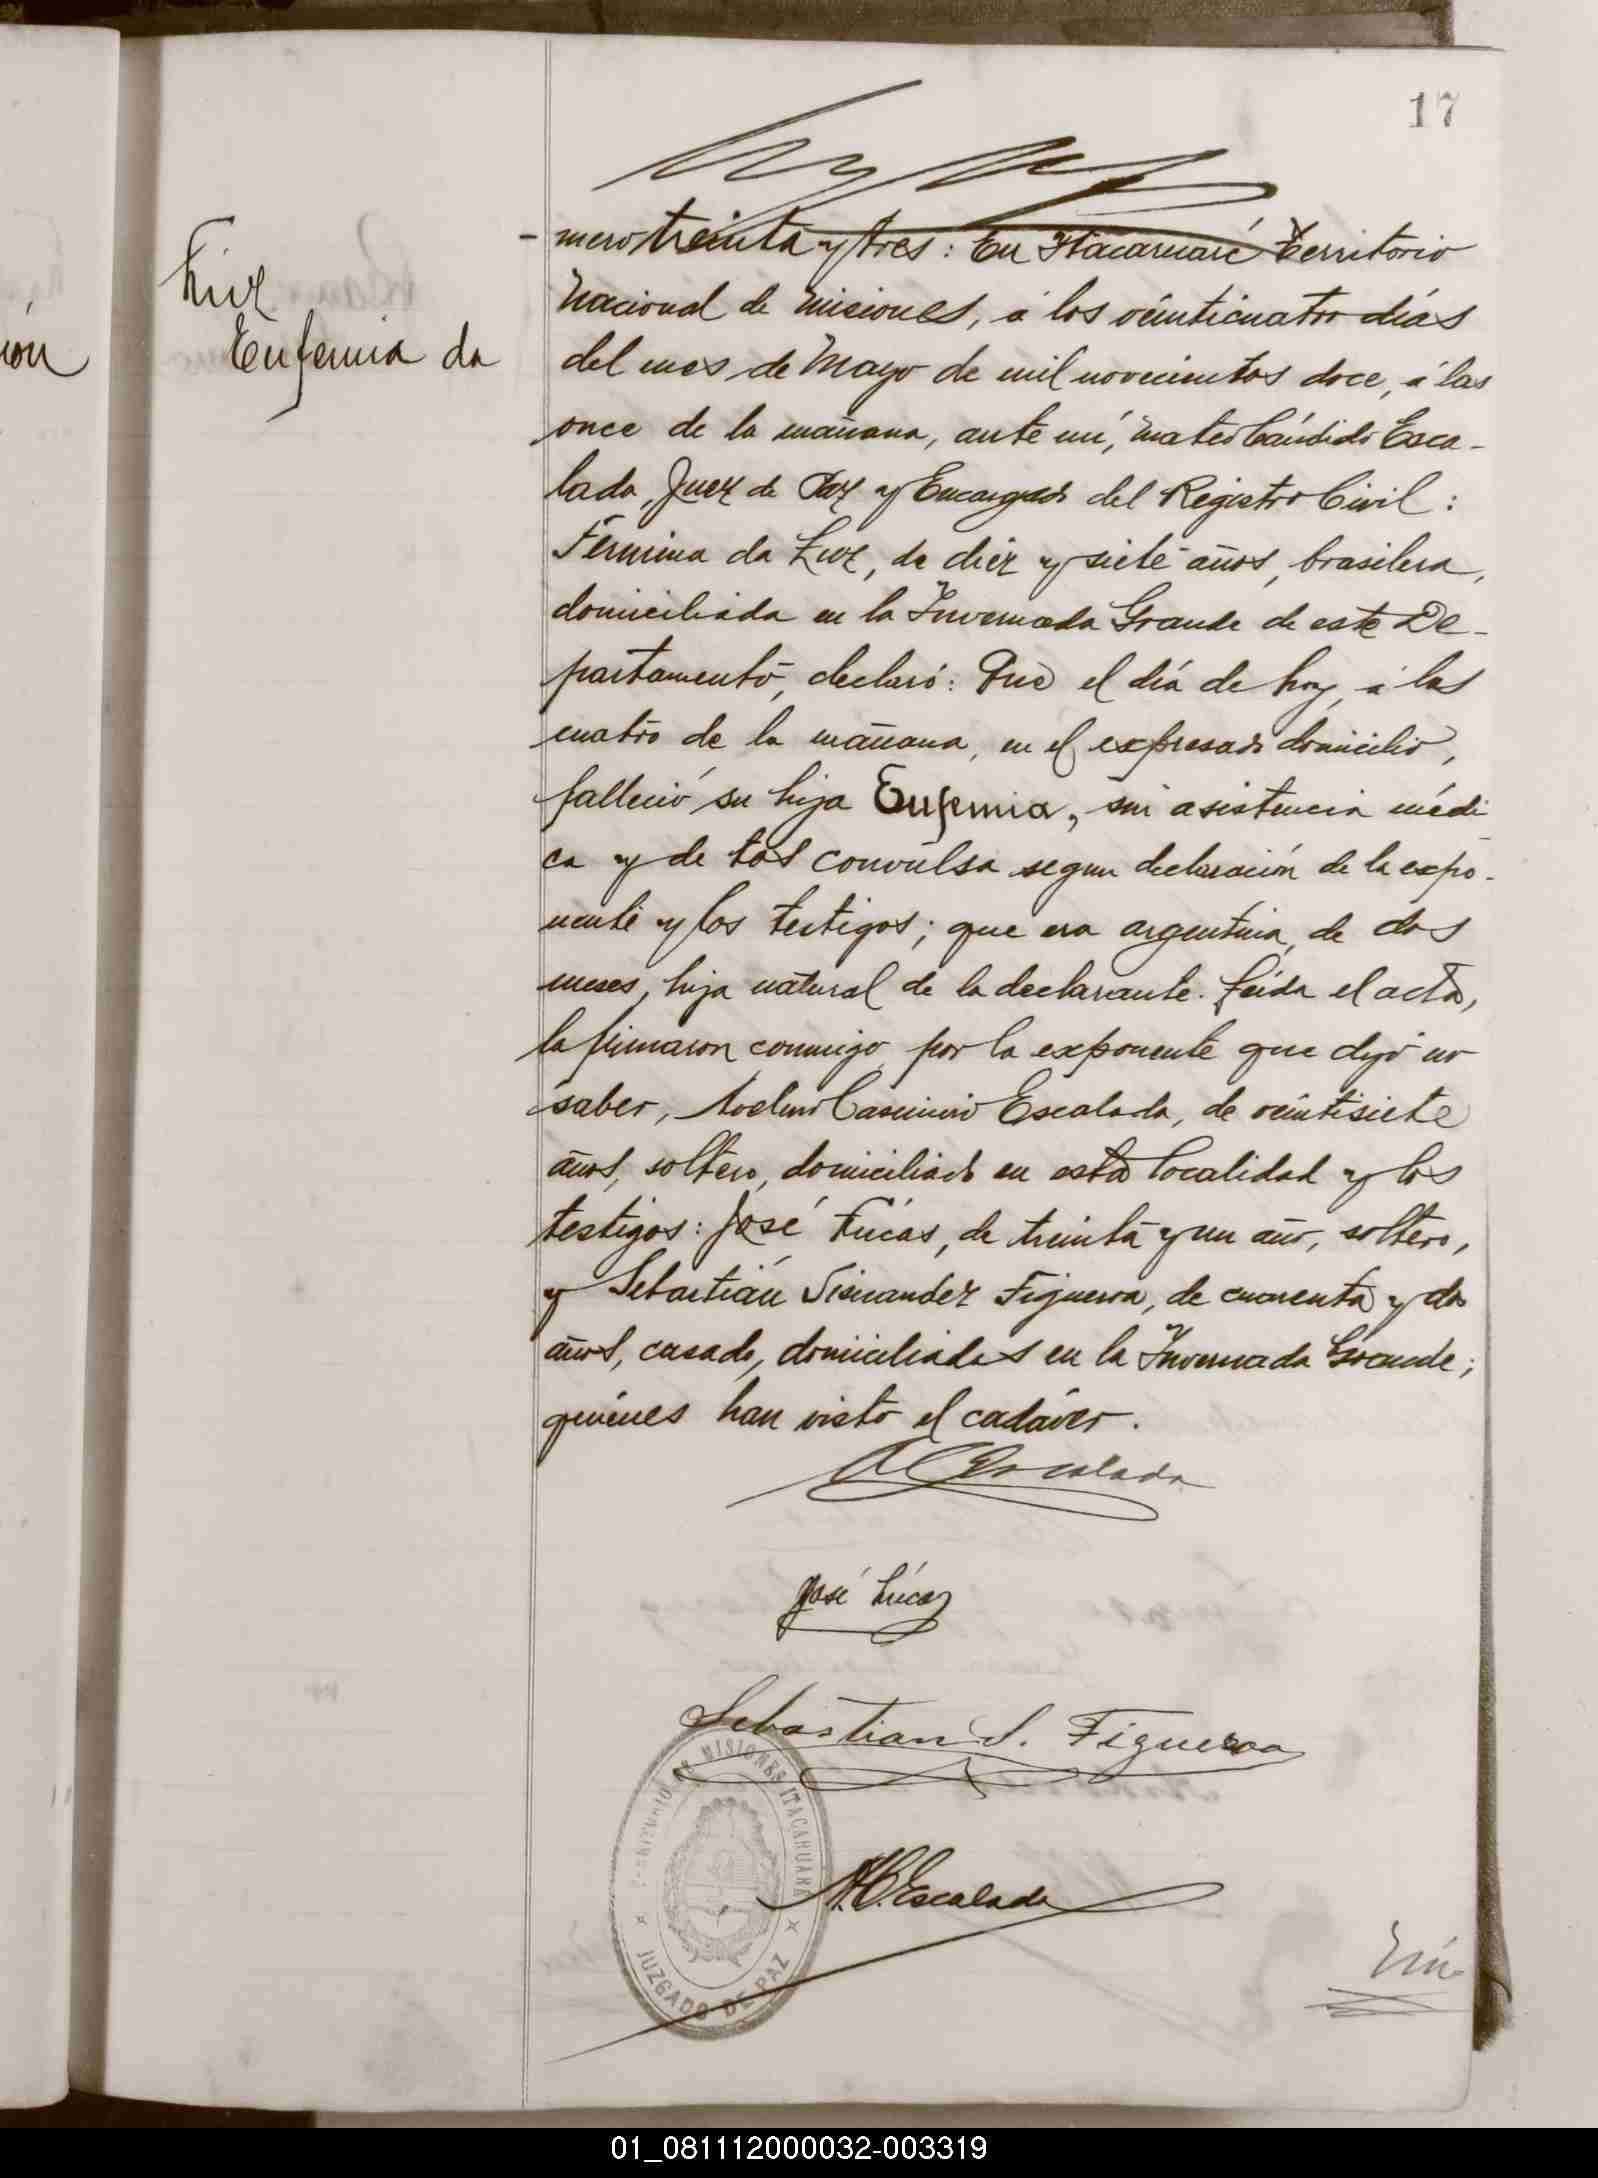 17
Luz
Eufemia da
ión
-mero treinta y tres: En Itacaruaré Territorio
Nacional de Misiones, á los veinticuatro días
del mes de Mayo de mil novecientos doce, á las
once de la mañana, ante mí, Mateo Cándido Esca-
lada, Juez de Paz y Encargado del Registro Civil:
Fermina da Luz, de diez y siete años, brasilera,
domiciliada en la Invernada Grande de este De-
partamento, declaró: Que el día de hoy, á las
cuatro de la mañana, en el expresado domicilio,
falleció su hija Eufemia, sin asistencia médi-
ca y de tos convulsa segun declaración de la expo-
nente y los testigos; que era argentina, de dos
meses, hija natural de la declarante. Leída el acta,
la firmaron conmigo, por la exponente que dijo no
saber, Casimiro Escalada, de veintisiete
años, soltero, domiciliado en esta localidad y los
testigos: José Lúcas, de treinta y un año, soltero,
y Sebastián Sisnandez Figueroa, de cuarenta y dos
años, casado, domiciliados en la Invernada Grande;
quiénes han visto el cadáver.
A C Escalada
José Lúcas
Sebastian S. Figueroa
TERRITORIO DE MISIONES ITACARUARE
JUZGADO DE PAZ
M. C. Escalada
01_081112000032-003319